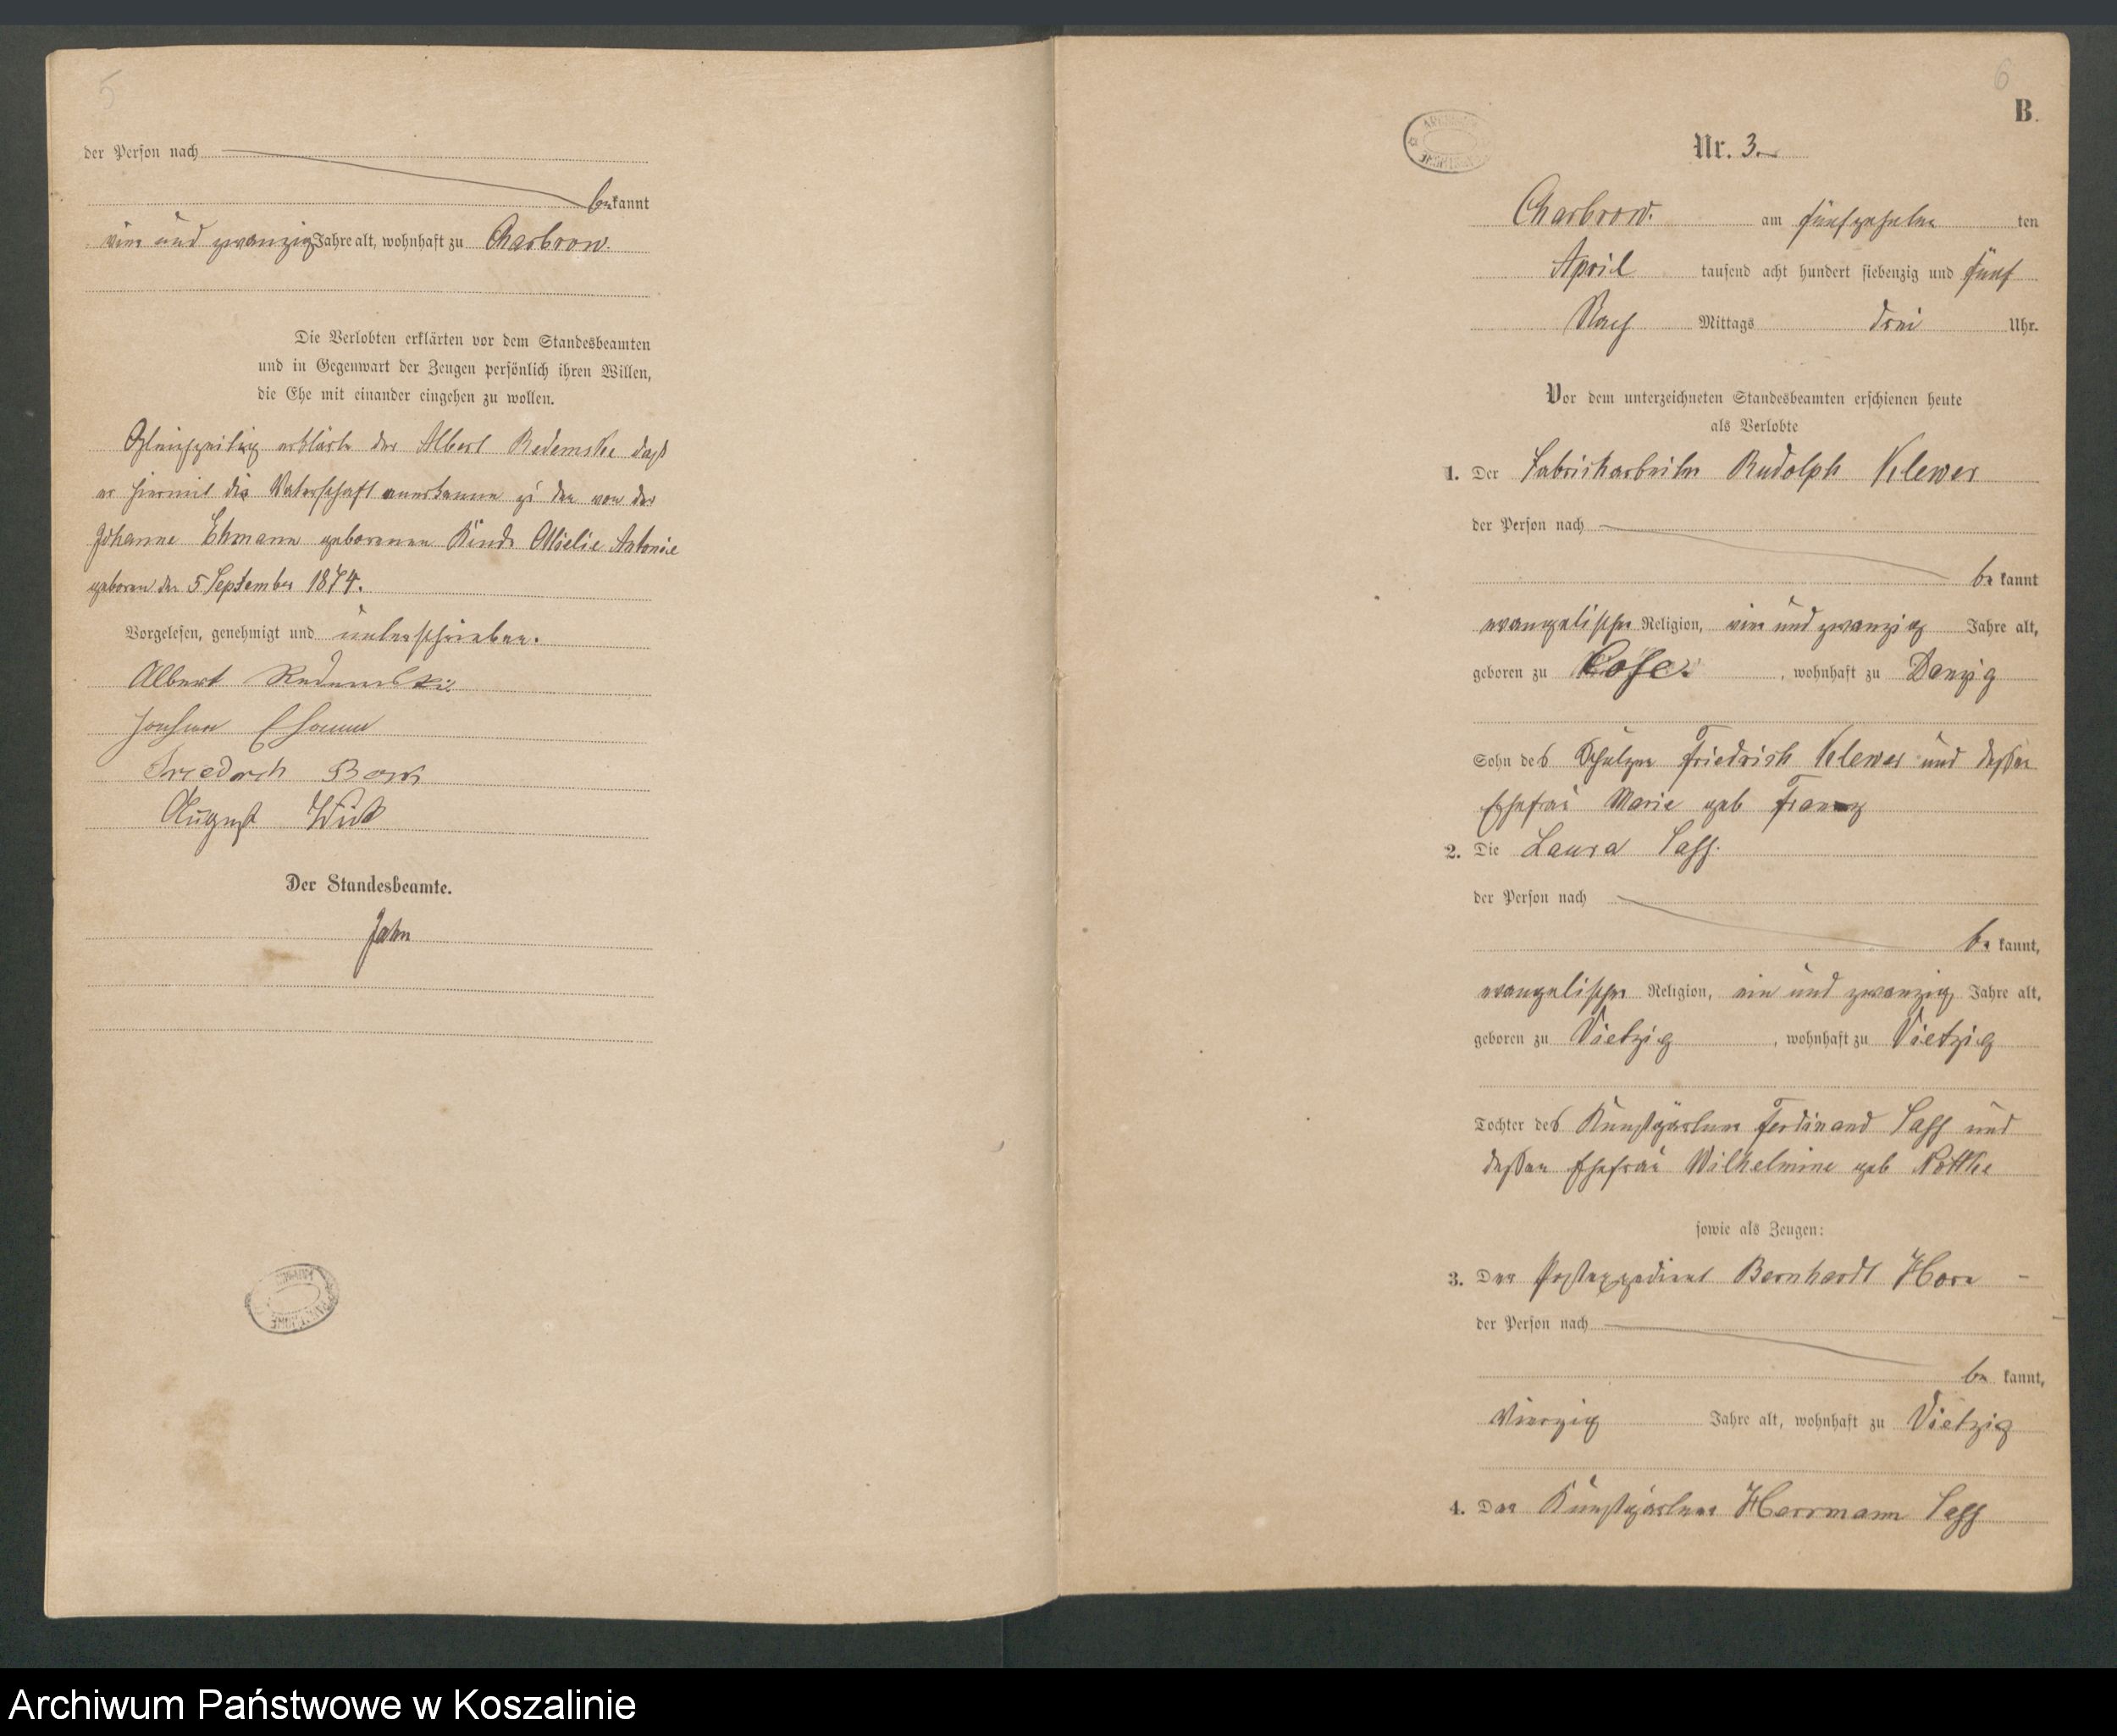 5
der Person nach
bekannt
vier und zwanzig Jahre alt, wohnhaft zu Charbrow.
Die Verlobten erklärten vor dem Standesbeamten
und in Gegenwart der Zeugen persönlich ihren Willen,
die Ehe mit einander eingehen zu wollen.
Gleichzeitig erklärte der Albert Redemske daß
er hiermit die Vaterschaft anerkenne zu den von der
Johanne Ehmann geborenen Kinde Antonie
geboren den 5 September 1874.
Vorgelesen, genehmigt und unterschrieben.
Albert
August
Der Standesbeamte.
Jahn
6
B.
Nr. 3.
Charbrow. am fünfzehnten
April tausend acht hundert siebenzig und fünf
Nach Mittags drei Uhr.
Vor dem unterzeichneten Standesbeamten erschienen heute
als Verlobte
1. Der Fabrikarbeiter Rudolph Klewer
der Person nach
be kannt
evangelischer Religion, vier und zwanzig Jahre alt,
geboren zu , wohnhaft zu Danzig
Sohn des Schulzen Friedrich Klewer und deßen
Ehefrau Marie geb Franz
2. Die Laura Saß.
der Person nach
be kannt,
evangelischer Religion, ein und zwanzig Jahre alt,
geboren zu Vietzig , wohnhaft zu Vietzig
Tochter des Kunstgärtner Ferdinand Saß und
deßen Ehefrau Wilhelmine geb
sowie als Zeugen:
3. Der Postexpedient Bernhardt Horn
der Person nach
be kannt,
Vierzig Jahre alt, wohnhaft zu Vietzig
4. Der Kunstgärtner Herrmann Saß
Archiwum Państwowe w Koszalinie